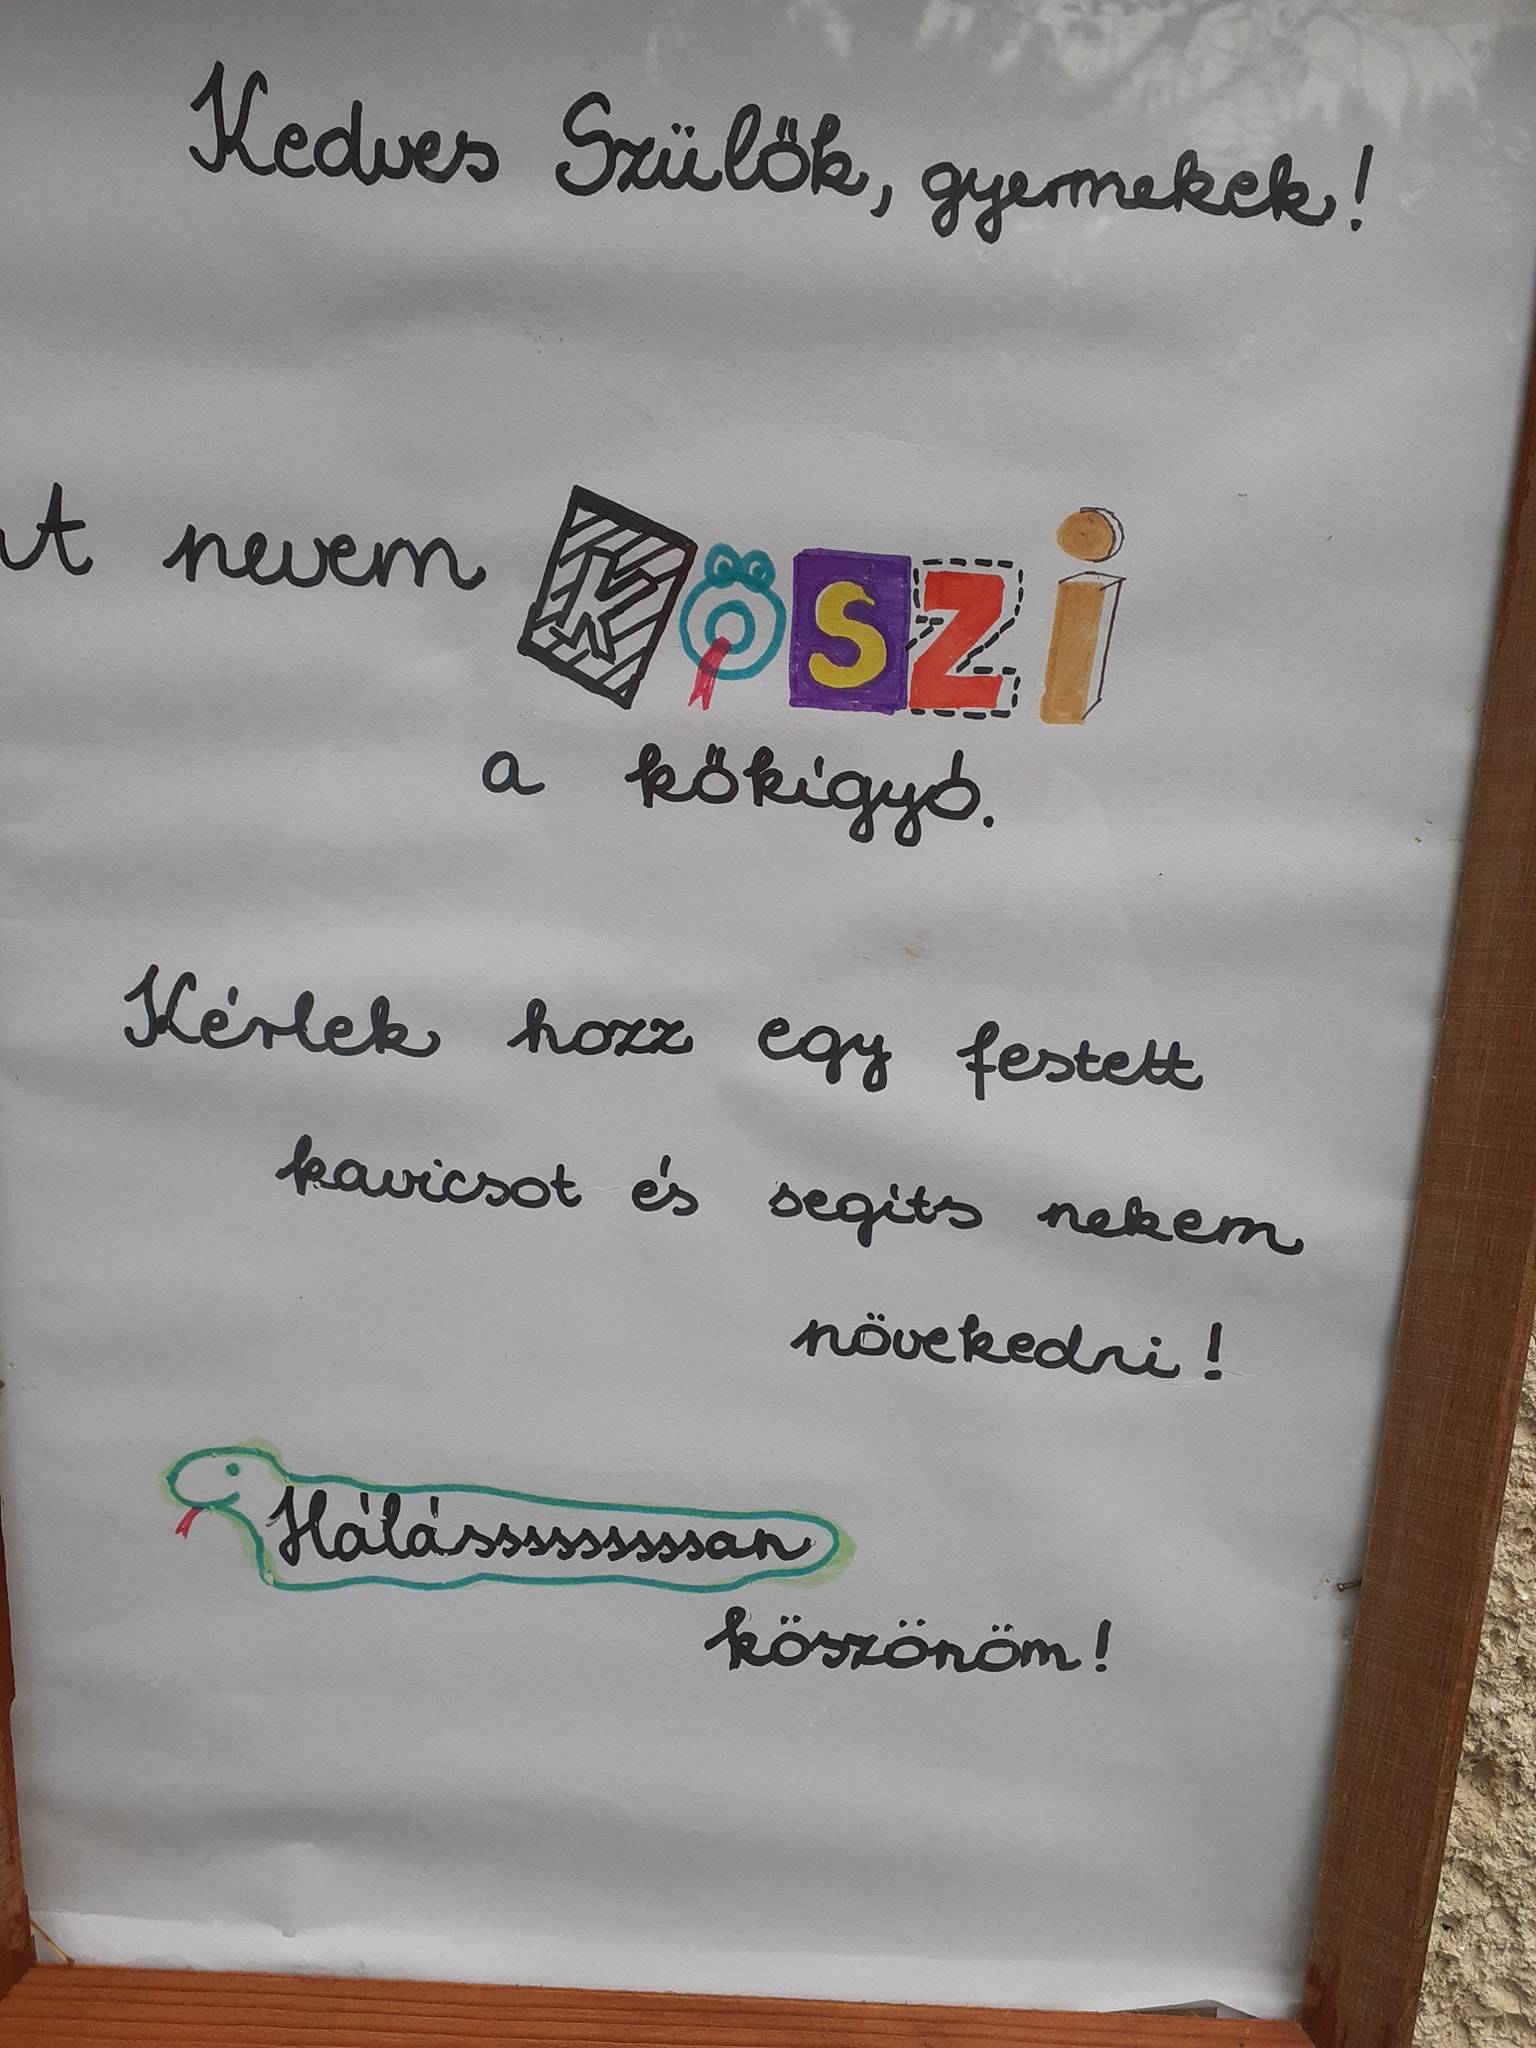 Kedves Szülők, gyermekek!
A nevem KöSZi
a kőkígyó.
Kérlek hozz egy festett
kavicsot és segíts nekem
növekedni!
Hálásssssssssan
köszönöm!